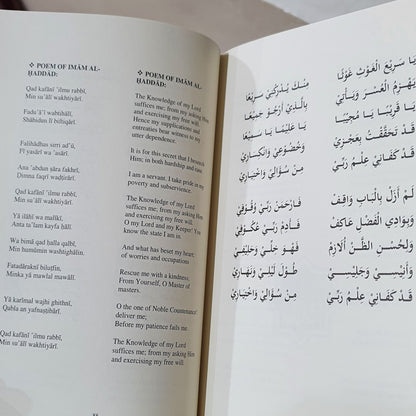 ❖ POEM OF IMĀM AL-
ḤADDĀD:
Qad kafānī 'ilmu rabbī,
Min su'ālī wakhtiyārī.
Fadu'ā'ī wabtihālī,
Shāhidun lī biftiqārī.
Falihādhas sirri ad'ū,
Fī yasārī wa 'asārī.
Ana 'abdun ṣāra fakhrī,
Ḍimna faqrī
Qad kafānī 'ilmu rabbī,
Min su'ālī wakhtiyārī.
Yā ilāhī wa malīkī,
Anta ta'lam kayfa ḥālī.
Wa bimā qad ḥalla qalbī,
Min humūmin washtighālin.
Fatadāraknī biluṭfin,
Minka yā mawlal mawālī.
Yā karīmal wajhi ghithnī,
Qabla an yafnaṣṭibārī.
Qad kafānī 'ilmu rabbī,
Min su'ālī wakhtiyārī.
❖ POEM OF IMĀM AL-
ḤADDĀD:
The Knowledge of my Lord
suffices me; from my asking Him
and exercising my free will.
Hence my supplications and
entreaties bear witness to my
utter dependence.
It is for this secret that I beseech
Him; in both hardship and ease.
I am a servant. I take pride in my
poverty and subservience.
The Knowledge of my Lord
suffices me; from my asking Him
and exercising my free will.
O my Lord and my Keeper! You
know the state I am in.
And what has beset my heart,
of worries and occupations.
Rescue me with a kindness,
From Yourself, O Master of
masters.
O the one of Noble Countenance!
deliver me;
Before my patience fails me.
The Knowledge of my Lord
suffices me; from my asking Him
and exercising my free will.
يَا سَرِيْعَ الْغَوْثِ غَوْثًا مِنْكَ يُدْرِكْنِيْ سَرِيْعًا
يَهْزِمُ الْعُسْرَ وَيَأْتِيْ بِالَّذِيْ أَرْجُو جَمِيْعًا
يَا قَرِيْبًا يَا مُجِيْبًا يَا عَلِيْمًا يَا سَمِيْعًا
قَدْ تَحَقَّقْتُ بِعَجْزِيْ وَخُضُوْعِيْ وَانْكِسَارِيْ
قَدْ كَفَانِيْ عِلْمُ رَبِّيْ مِنْ سُؤَالِيْ وَاخْتِيَارِيْ
لَمْ أَزَلْ بِالْبَابِ وَاقِفْ فَارْحَمَنْ رَبِّيْ وُقُوْفِيْ
وَبِوَادِي الْفَضْلِ عَاكِفْ فَأَدِمْ رَبِّيْ عُكُوْفِيْ
وَلِحُسْنِ الظَّنِّ أُلَازِمْ فَهُوَ خِلِّيْ وَحَلِيْفِيْ
وَأَنِيْسِيْ وَجَلِيْسِيْ طُوْلَ لَيْلِيْ وَنَهَارِيْ
قَدْ كَفَانِيْ عِلْمُ رَبِّيْ مِنْ سُؤَالِيْ وَاخْتِيَارِيْ